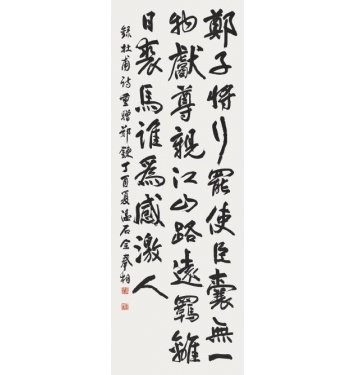 鄭子將行罷使臣囊無一
物獻尊親江山路遠羈離
日裘馬誰爲感激人
錄杜甫詩重贈鄭鍊丁酉夏